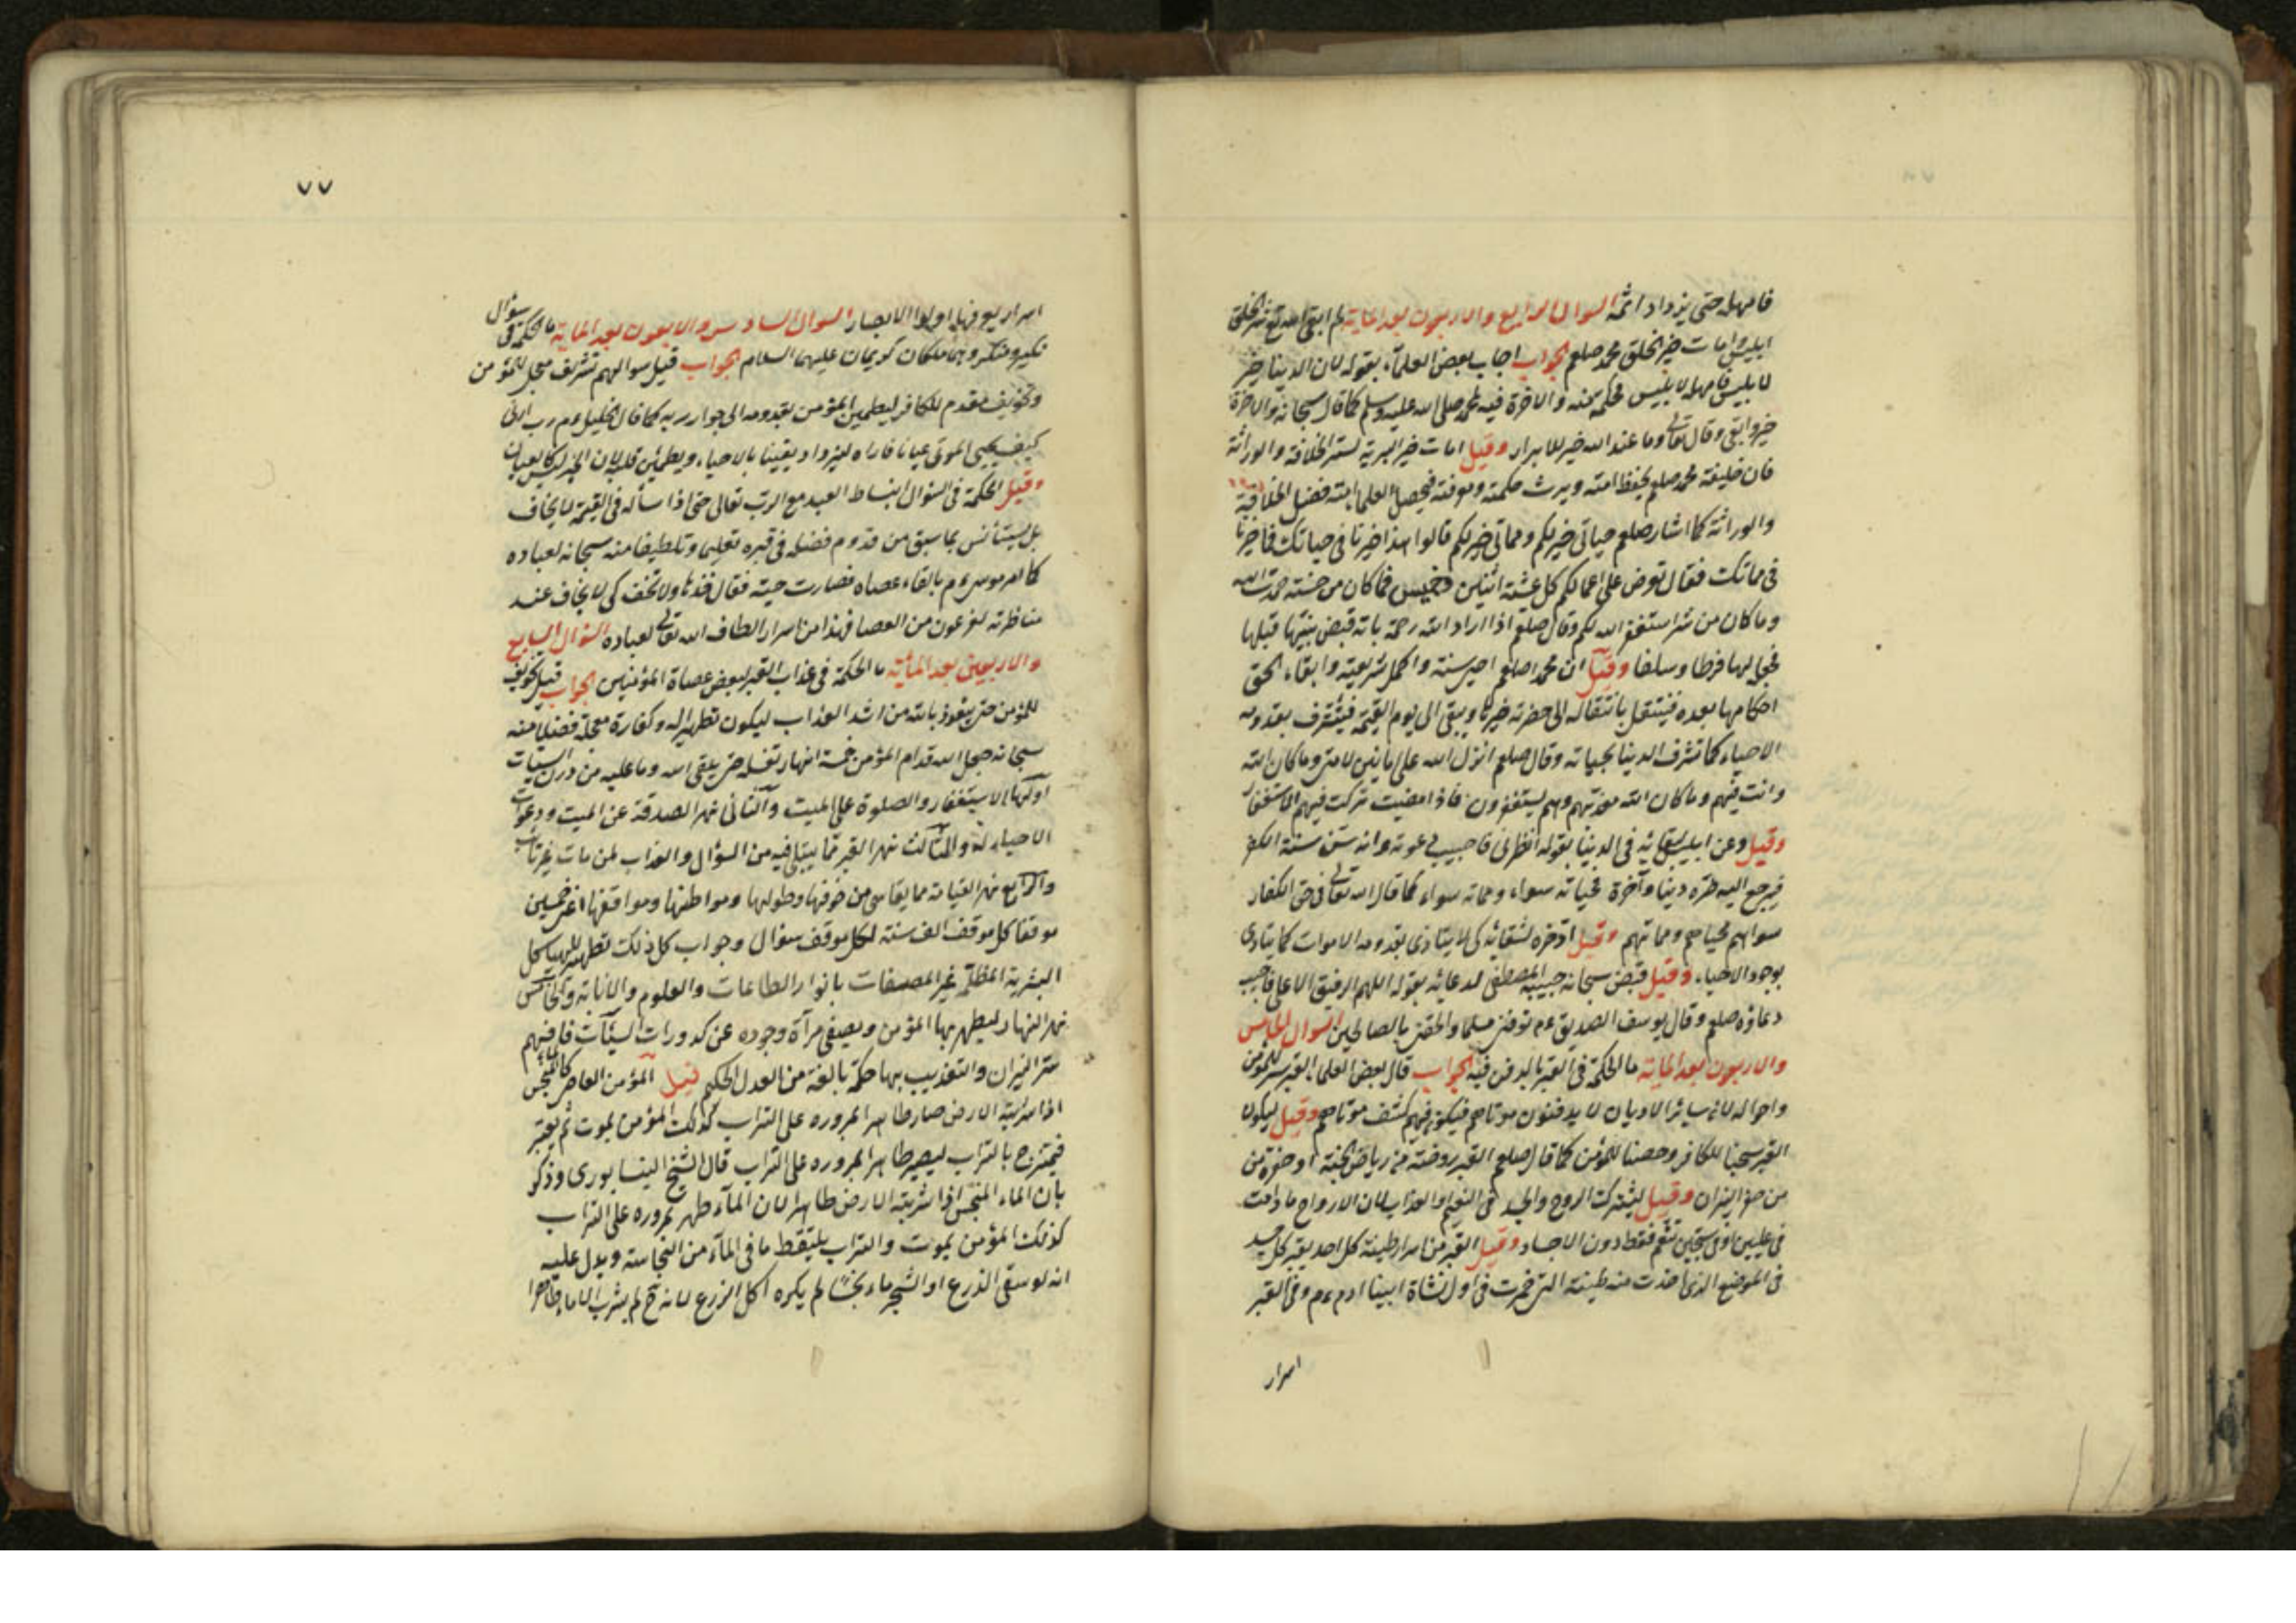 فامهله حتى يزداد اثمه السوال الرابع والاربعون بعد الماية لم ابقى الله تع شر الخلق
ابليس وامات خير الخلق محمد صلعم الجواب اجاب بعض العلمآء بقوله لان الدينا خير
لابليس فامهله لابليس محكمة منه والاخرة فيه لمحمد صلى الله عليه وسلم كما قال سبحانه والاخرة
خير وابقى وقال تعالى وما عند الله خير للابرار وقيل امات خير البرية لستر الخلافة والوراثة
فان خليفة محمد صلعم يحفظ امته ويرث حكمته ومعرفته فيحصل لعلما امته فضل الخلافة
والوراثة كما اشار صلعم حياتى خير لكم ومماتى خير لكم قالوا هذا خيرنا فى حياتك فما خيرنا
فى مماتك فقال تعرض على اعمالكم كل عشية اثنين وخميس فما كان من حسنة حمدت الله
وما كان من شر استغفر الله لكم وقال صلعم اذا اراد الله رحمة بامة قبض نبيها قبلها
فجعل لها فرطا وسلفا وقيل ان محمدا صلعم احيى سنته واكمل شريعته وابقاء الحق
احكامها بعده فينتقل بانتقاله الى حضرته خيرنا ويبقى الى يوم القيمة فيشرف بقدومه
الاحياء كما تشرف الدينا بحياته وقال صلعم انزل الله على امانين لامتى وما كان الله
وانت فيهم وما كان الله معذبهم وهم يستغفرون فاذا امضيت تركت فيهم الاستغفار
وقيل وعن ابليس بقائه فى الدينا بقوله انظرنى فاجيب دعوته وانه سن سنة الكفر
فيرجع اليه ضره دينا وآخرة فحياته سواء ومماته سواء كما قال الله تعالى فى حق الكفار
سواءهم محياهم ومماتهم وقيل اخره لشقائه كى لا يتاذى بقدومه الاموات كما يتاذى
بوجود الاحياء وقيل قبض سبحانه حبيبه المصطفى لدعائه بقوله اللهم الرفيق الاعلى فاجيب
دعاؤه صلعم وقال يوسف الصديق ءم توفنى مسلما والحقنى بالصالحين السوال الخامس
والاربعون بعد الماية ما الحكمة فى القبر بالدفن فيه الجواب قال بعض العلما القبر ستر للمؤمن
واحواله لان سائر الاديان لا يدفنون موتاهم فيكون فيهم كشف موتاهم وقيل ليكون
القبر سجنا للكافر وحصنا للمؤمن كما قال صلعم القبر روضة من رياض الجنة او حفرة من
من حفر النيران وقيل ليشترك الروح والجسد فى النعيم والعذاب لان الارواح ما دامت
فى عليين او فى سجين تنعم فقط دون الاجساد وقيل القبر من اسرار طينة كل احد يقبر كل جسد
فى الموضع الذى اخذت منه طينته التى خمرت فى اول نشاة ابينا ادم ءم وفى القبر
اسرار
٧٧
اسرار يعرفها اولوا الابصار السوال السادس والاربعون بعد الماية ما الحكمة فى سؤال
نكير ومنكر وهما ملكان كريمان عليهما السلام الجواب قيل سوالهم تشريف معجل للمؤمن
وتخويف مقدم للكافر ليطمئن المؤمن بقدومه الى جوار ربه كما قال الخليل ءم رب ارنى
كيف يحيى الموتى عيانا فاراه ليزداد يقينا بالاحياء ويطمئن قلبه لان الخبر ليس كالعيان
وقيل الحكمة فى السؤال انبساط العبد مع الرب تعالى حتى اذا سأله فى القيمة لا يخاف
بل يستأنس بما سبق من قدوم فضله فى قبره تعليما وتلطيفا منه سبحانه لعباده
كما امر موسى ءم بالقاء عصاه فصارت حية فقال خذها ولا تخف كى لا يخاف عند
مناظرته لفرعون من العصا فهذا من اسرار الطاف الله تعالى لعباده السؤال السابع
والاربعين بعد المائة ما الحكمة فى عذاب القبر لبعض عصاة المؤمنين الجواب قيل تخويف
للمؤمن حتى يتعوذ بالله من اشد العذاب ليكون تطهيرا له وكفارة معجلة فضلا منه
سبحانه جعل الله قدام المؤمن خمسة انهار تغسله حتى يلقى الله وما عليه من درن السيئات
اولها الاستغفار والصلوة على الميت والثانى نهر الصدقة عن الميت ودعوات
الاحياء له والثالث نهر القبر مما يبتلى فيه من السؤال والعذاب لمن مات غير تائب
والرابع نهر القيامة مما يقاسى من خوفها وطولها ومواطنها ومواقفها اعنى خمسين
موقفا كل موقف الف سنة لكل موقف سؤال وجواب كل ذلك تطهير للهياكل
البشرية المظلمة غير المصفات بانوار الطاعات والعلوم والانابة والخامس
نهر النهار ليطهر بها المؤمن ويصفى مرآة وجوده عن كدورات السيئات فافهم
ستر النيران والتعذيب بها حكمة بالغة من العدل الحكيم قيل المؤمن العاصى كالماء النجس
اذا شربته الارض صار طاهرا لمروره على التراب كذلك المؤمن يموت ثم يقبر
فيمتزج بالتراب ليصير طاهرا لمروره على التراب قال الشيخ النيسابورى وذكر
بان الماء المنجس اذا شربته الارض طاهرا لان المآء طهر بمروره على التراب
كذلك المؤمن يموت والتراب يلتقط ما فى المآء من النجاسة ويدل عليه
انه لو سقى الذرع او الشجر ماء نجسا لم يكره اكل الزرع لانه تح لم يشرب الا ماء طاهرا